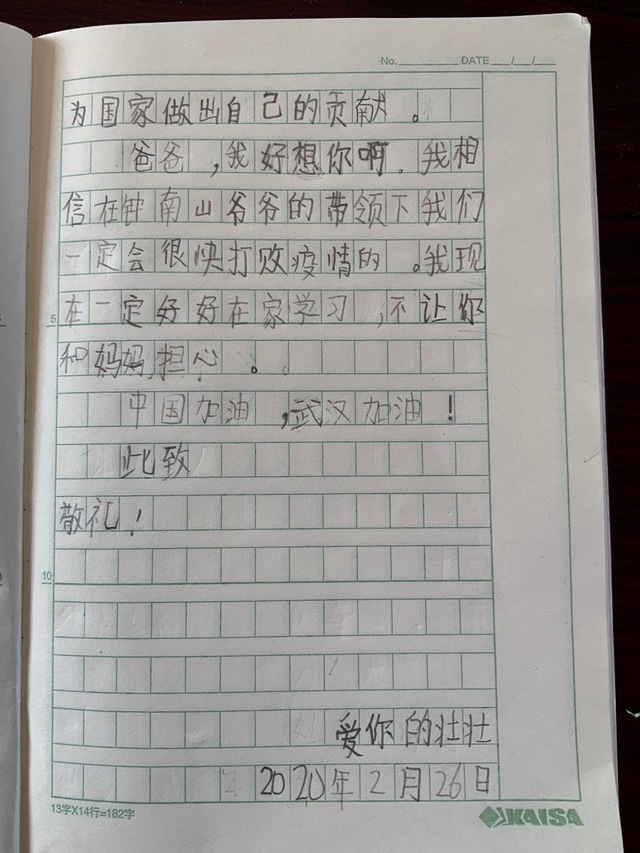 ·No. ________ DATE __/__/__
为国家做出自己的贡献。
爸爸，我好想你啊。我相
信在钟南山爷爷的带领下我们
一定会很快打败疫情的。我现
5 在一定好好在家学习，不让你
和妈妈担心。
中国加油，武汉加油！
此致
敬礼！
10
爱你的壮壮
2020年2月26日
13字X14行=182字
KAISA